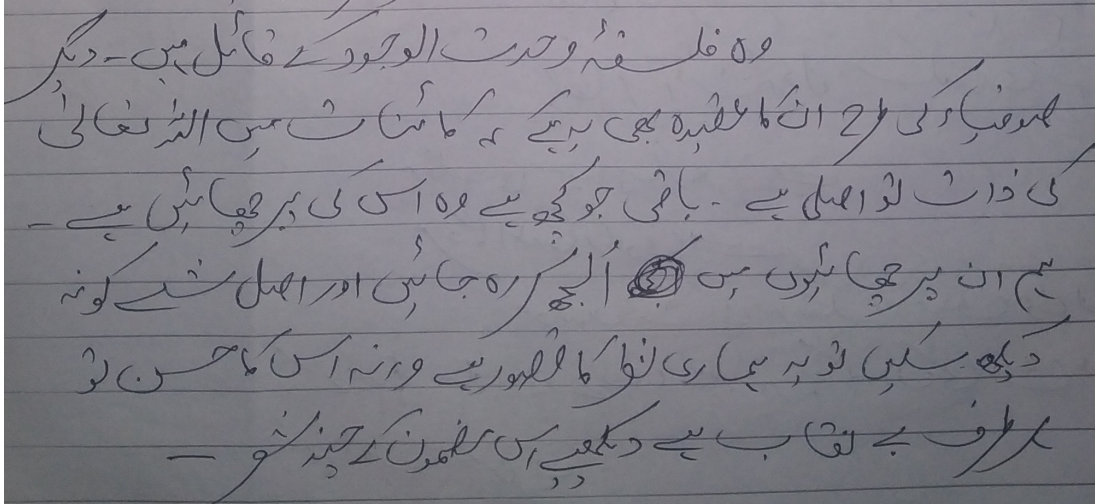 وہ فلسفۂ وحدت الوجود کے قائل ہیں۔ دیگر
صوفیاء کی طرح ان کا عقیدہ بھی یہ ہے کہ کائنات میں اللہ تعالیٰ
کی ذات تو اصلی ہے۔ باقی جو کچھ ہے وہ اس کی پرچھائیں ہے۔
ہم ان پرچھائیوں میں اُلجھ کر رہ جائیں اور اصل شے کو نہ
دیکھ سکیں تو یہ ہماری نظر کا قصور ہے ورنہ اس کا حسن تو
ہر طرف بے نقاب ہے دیکھیے اس مضمون کے چند شعر۔